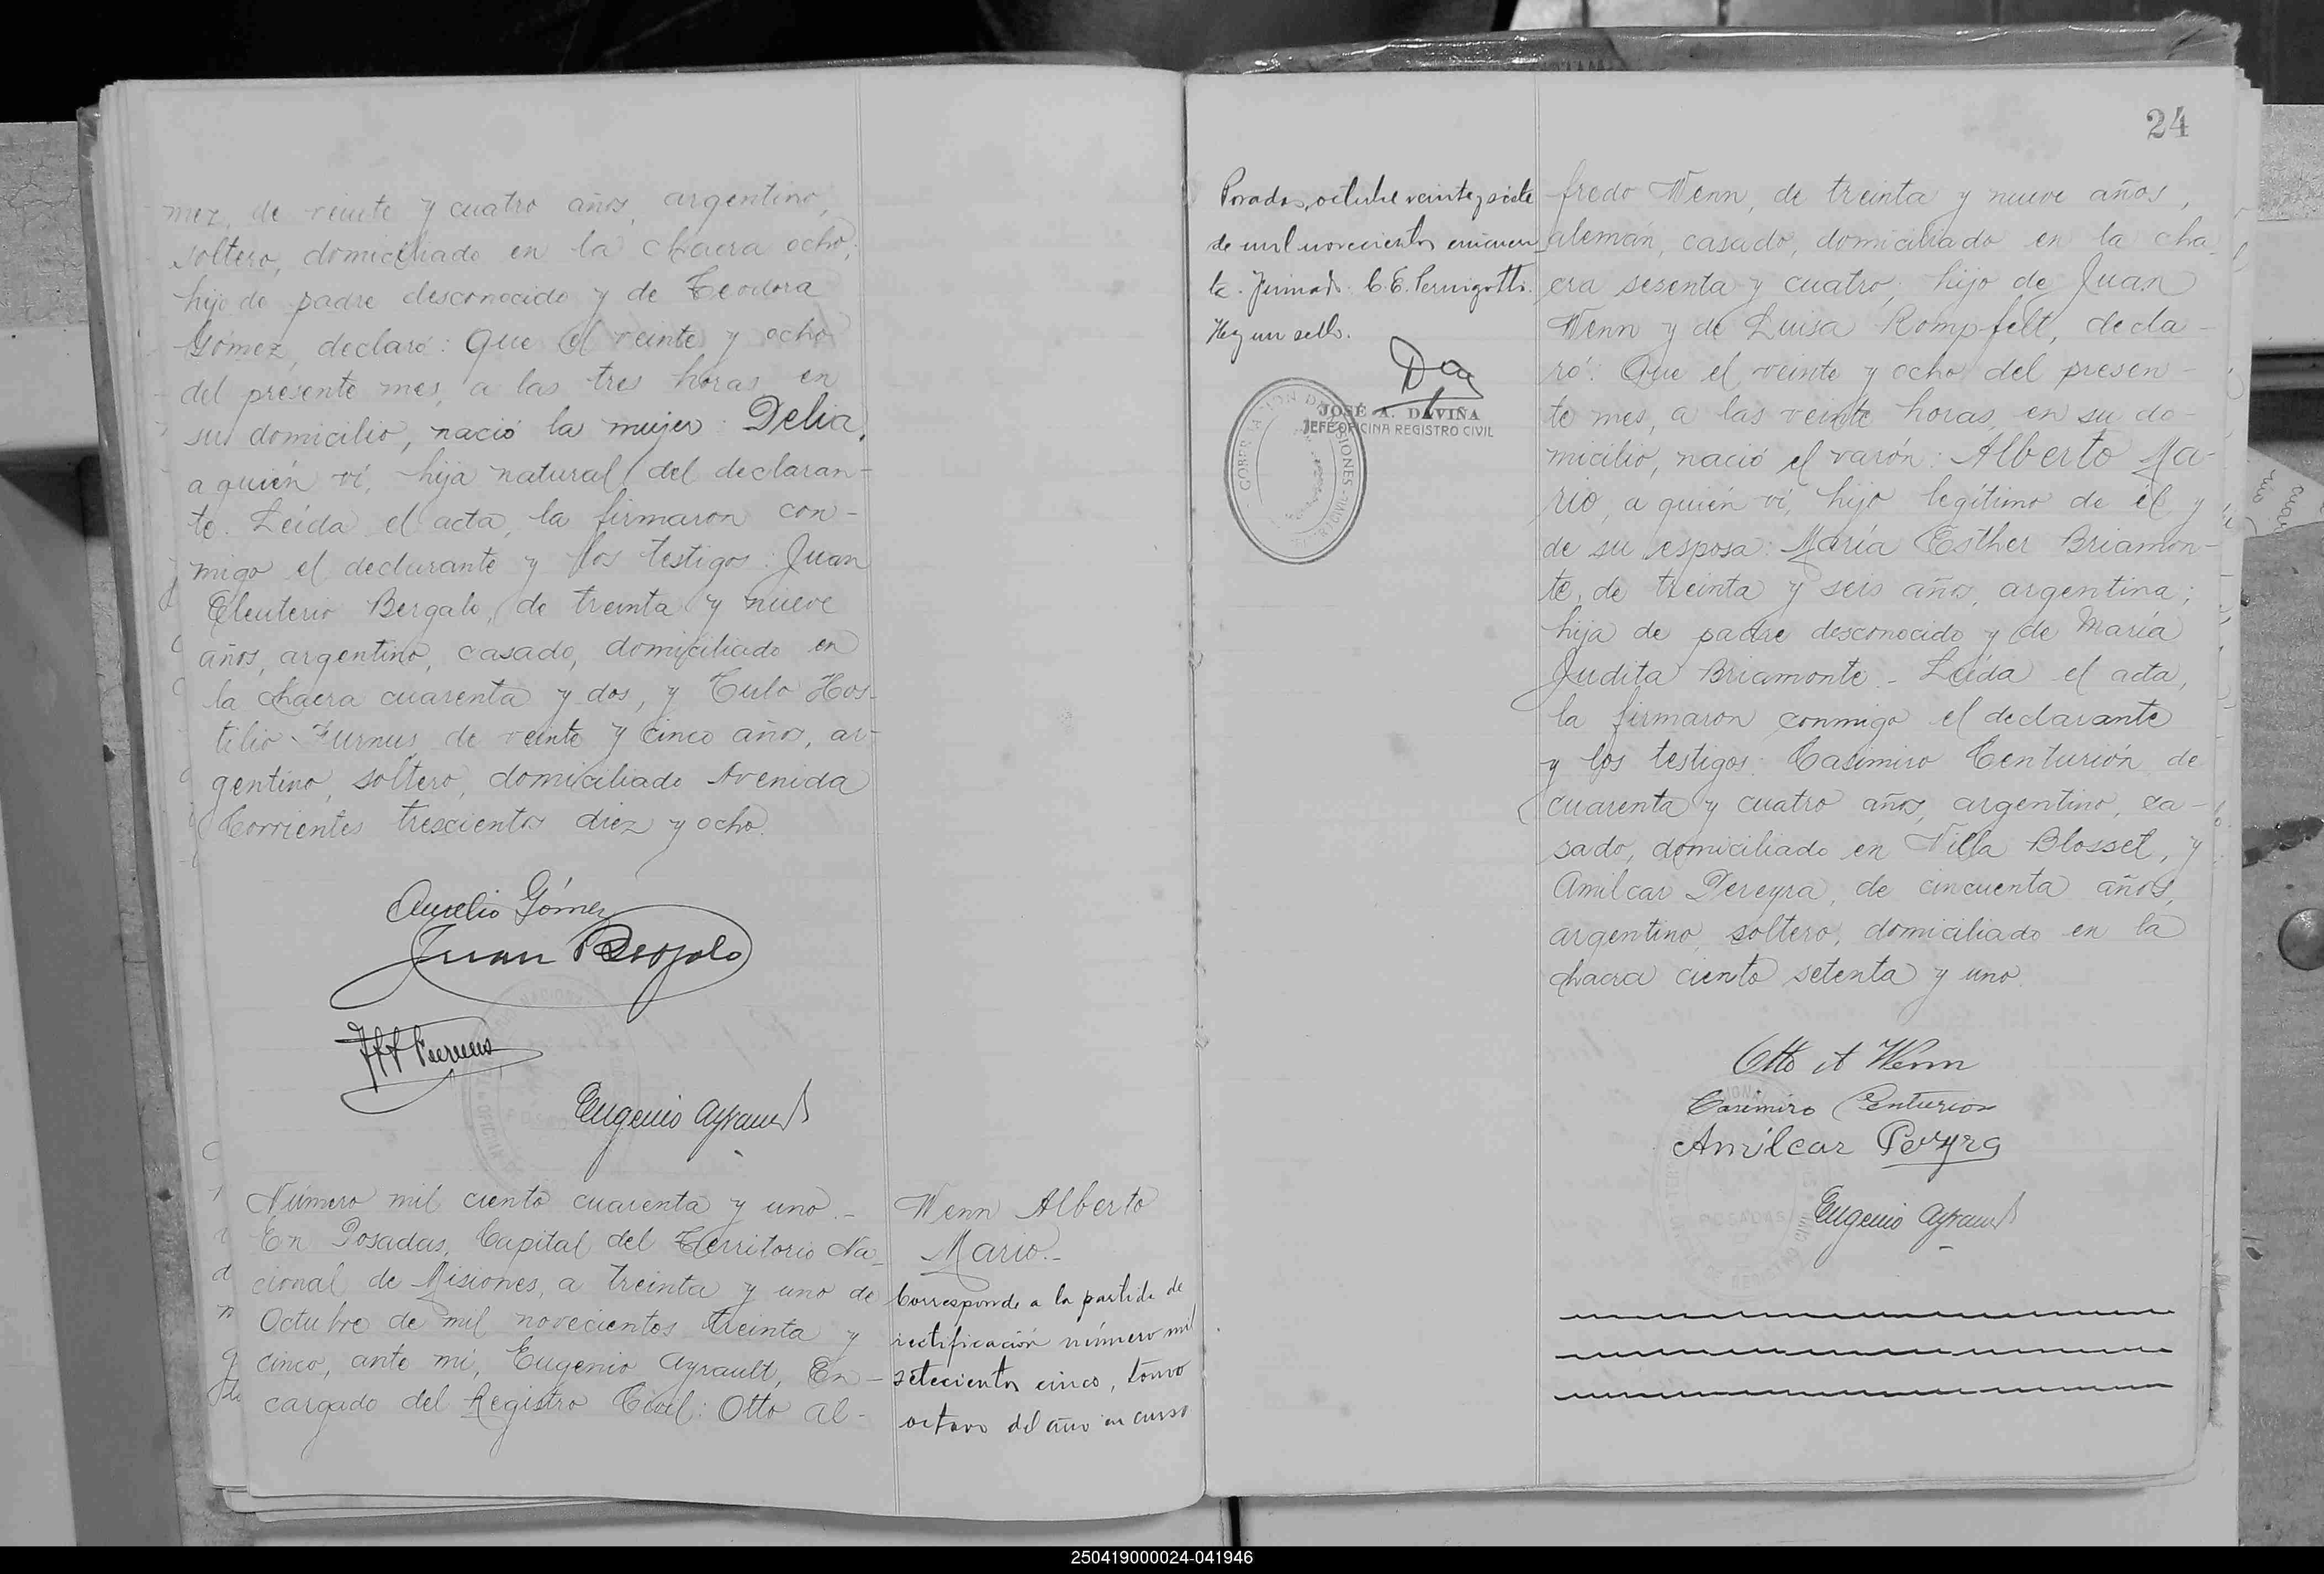 mez, de veinte y cuatro años, argentino,
soltero, domiciliado en la chacra ocho,
hijo de padre desconocido y de Teodora
Gómez, declaró: Que el veinte y ocho
del presente mes, a las tres horas, en
su domicilio, nació la mujer: Delia,
a quién ví, hija natural del declaran-
te. Leída el acta, la firmaron con-
migo el declarante y los testigos: Juan
Eleuterio Bergalo, de treinta y nueve
años, argentino, casado, domiciliado en
la chacra cuarenta y dos, y Tulo Hos-
tilio Furnus, de veinte y cinco años, ar-
gentino, soltero, domiciliado Avenida
Corrientes trescientos diez y ocho.
Aurelio Gómez
Juan Bergalo
Furnus
Eugenio Ayrault
Número mil ciento cuarenta y uno.-
En Posadas, Capital del Territorio Na-
cional de Misiones, a treinta y uno de
Octubre de mil novecientos treinta y
cinco, ante mí, Eugenio Ayrault, En-
cargado del Registro Civil: Otto Al-
Wenn Alberto
Mario.-
Corresponde a la partida de
rectificación número mil
setecientos cinco, tomo
octavo del año en curso
Posadas, octubre veinte y siete
de mil novecientos cincuen
ta. Firmado: C. E. Pernigotti.
Hay un sello.
JOSÉ A. DAVIÑA
JEFE OFICINA REGISTRO CIVIL
24
fredo Wenn, de treinta y nueve años,
alemán, casado, domiciliado en la cha-
cra sesenta y cuatro, hijo de Juan
Wenn y de Luisa Rompfelt, decla-
ró: Que el veinte y ocho del presen-
te mes, a las veinte horas, en su do-
micilio, nació el varón: Alberto Ma-
rio, a quién ví, hijo legítimo de él y
de su esposa: María Esther Briamon-
te, de treinta y seis años, argentina;
hija de padre desconocido y de María
Judita Briamonte.- Leída el acta,
la firmaron conmigo el declarante
y los testigos: Casimiro Centurión de
cuarenta y cuatro años, argentino, ca-
sado, domiciliado en Villa Blosset, y
Amilcar Pereyra, de cincuenta años,
argentino, soltero, domiciliado en la
chacra ciento setenta y uno.
Otto A Wenn
Casimiro Centurion
Amilcar Pereyra
Eugenio Ayrault
250419000024-041946